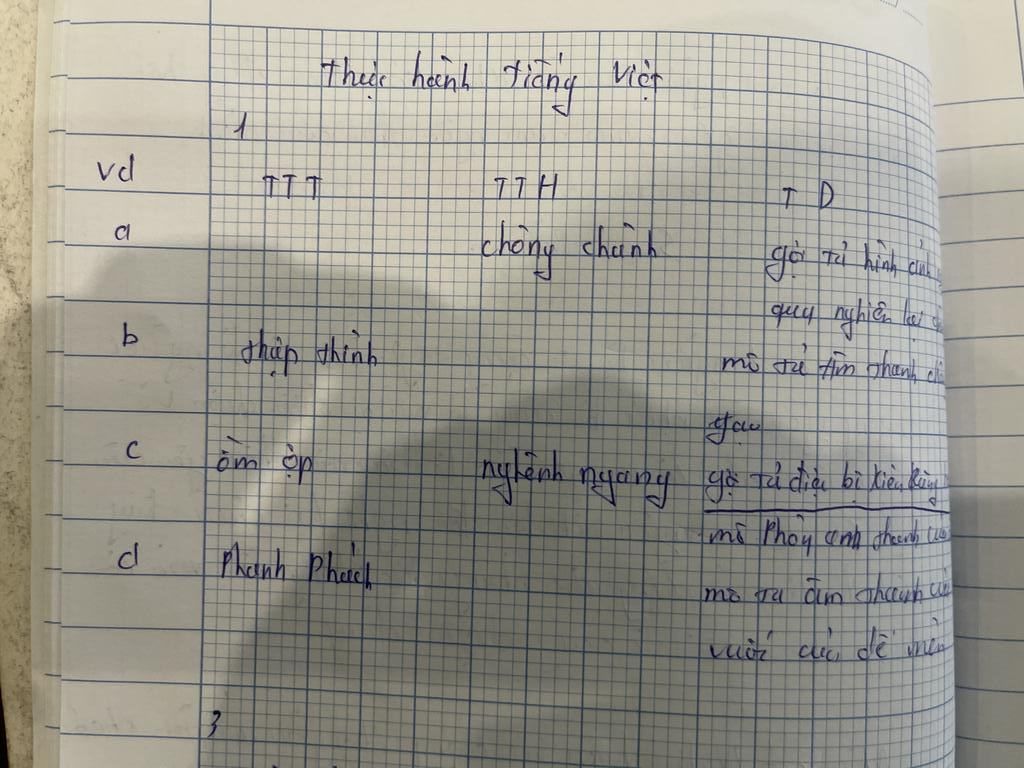 Thực hành tiếng Việt
1
vd TTT TTH TD
a chòng chành gợi tả hình ảnh
quy nghiên lại
b thập thình mô tả âm thanh
gạo
c ồm ộp nghênh ngang gợi tả điệu bị
mô Phỏng anh thanh của
d Phanh Phách mô tả âm thanh của
vuốt của dế mèn
3